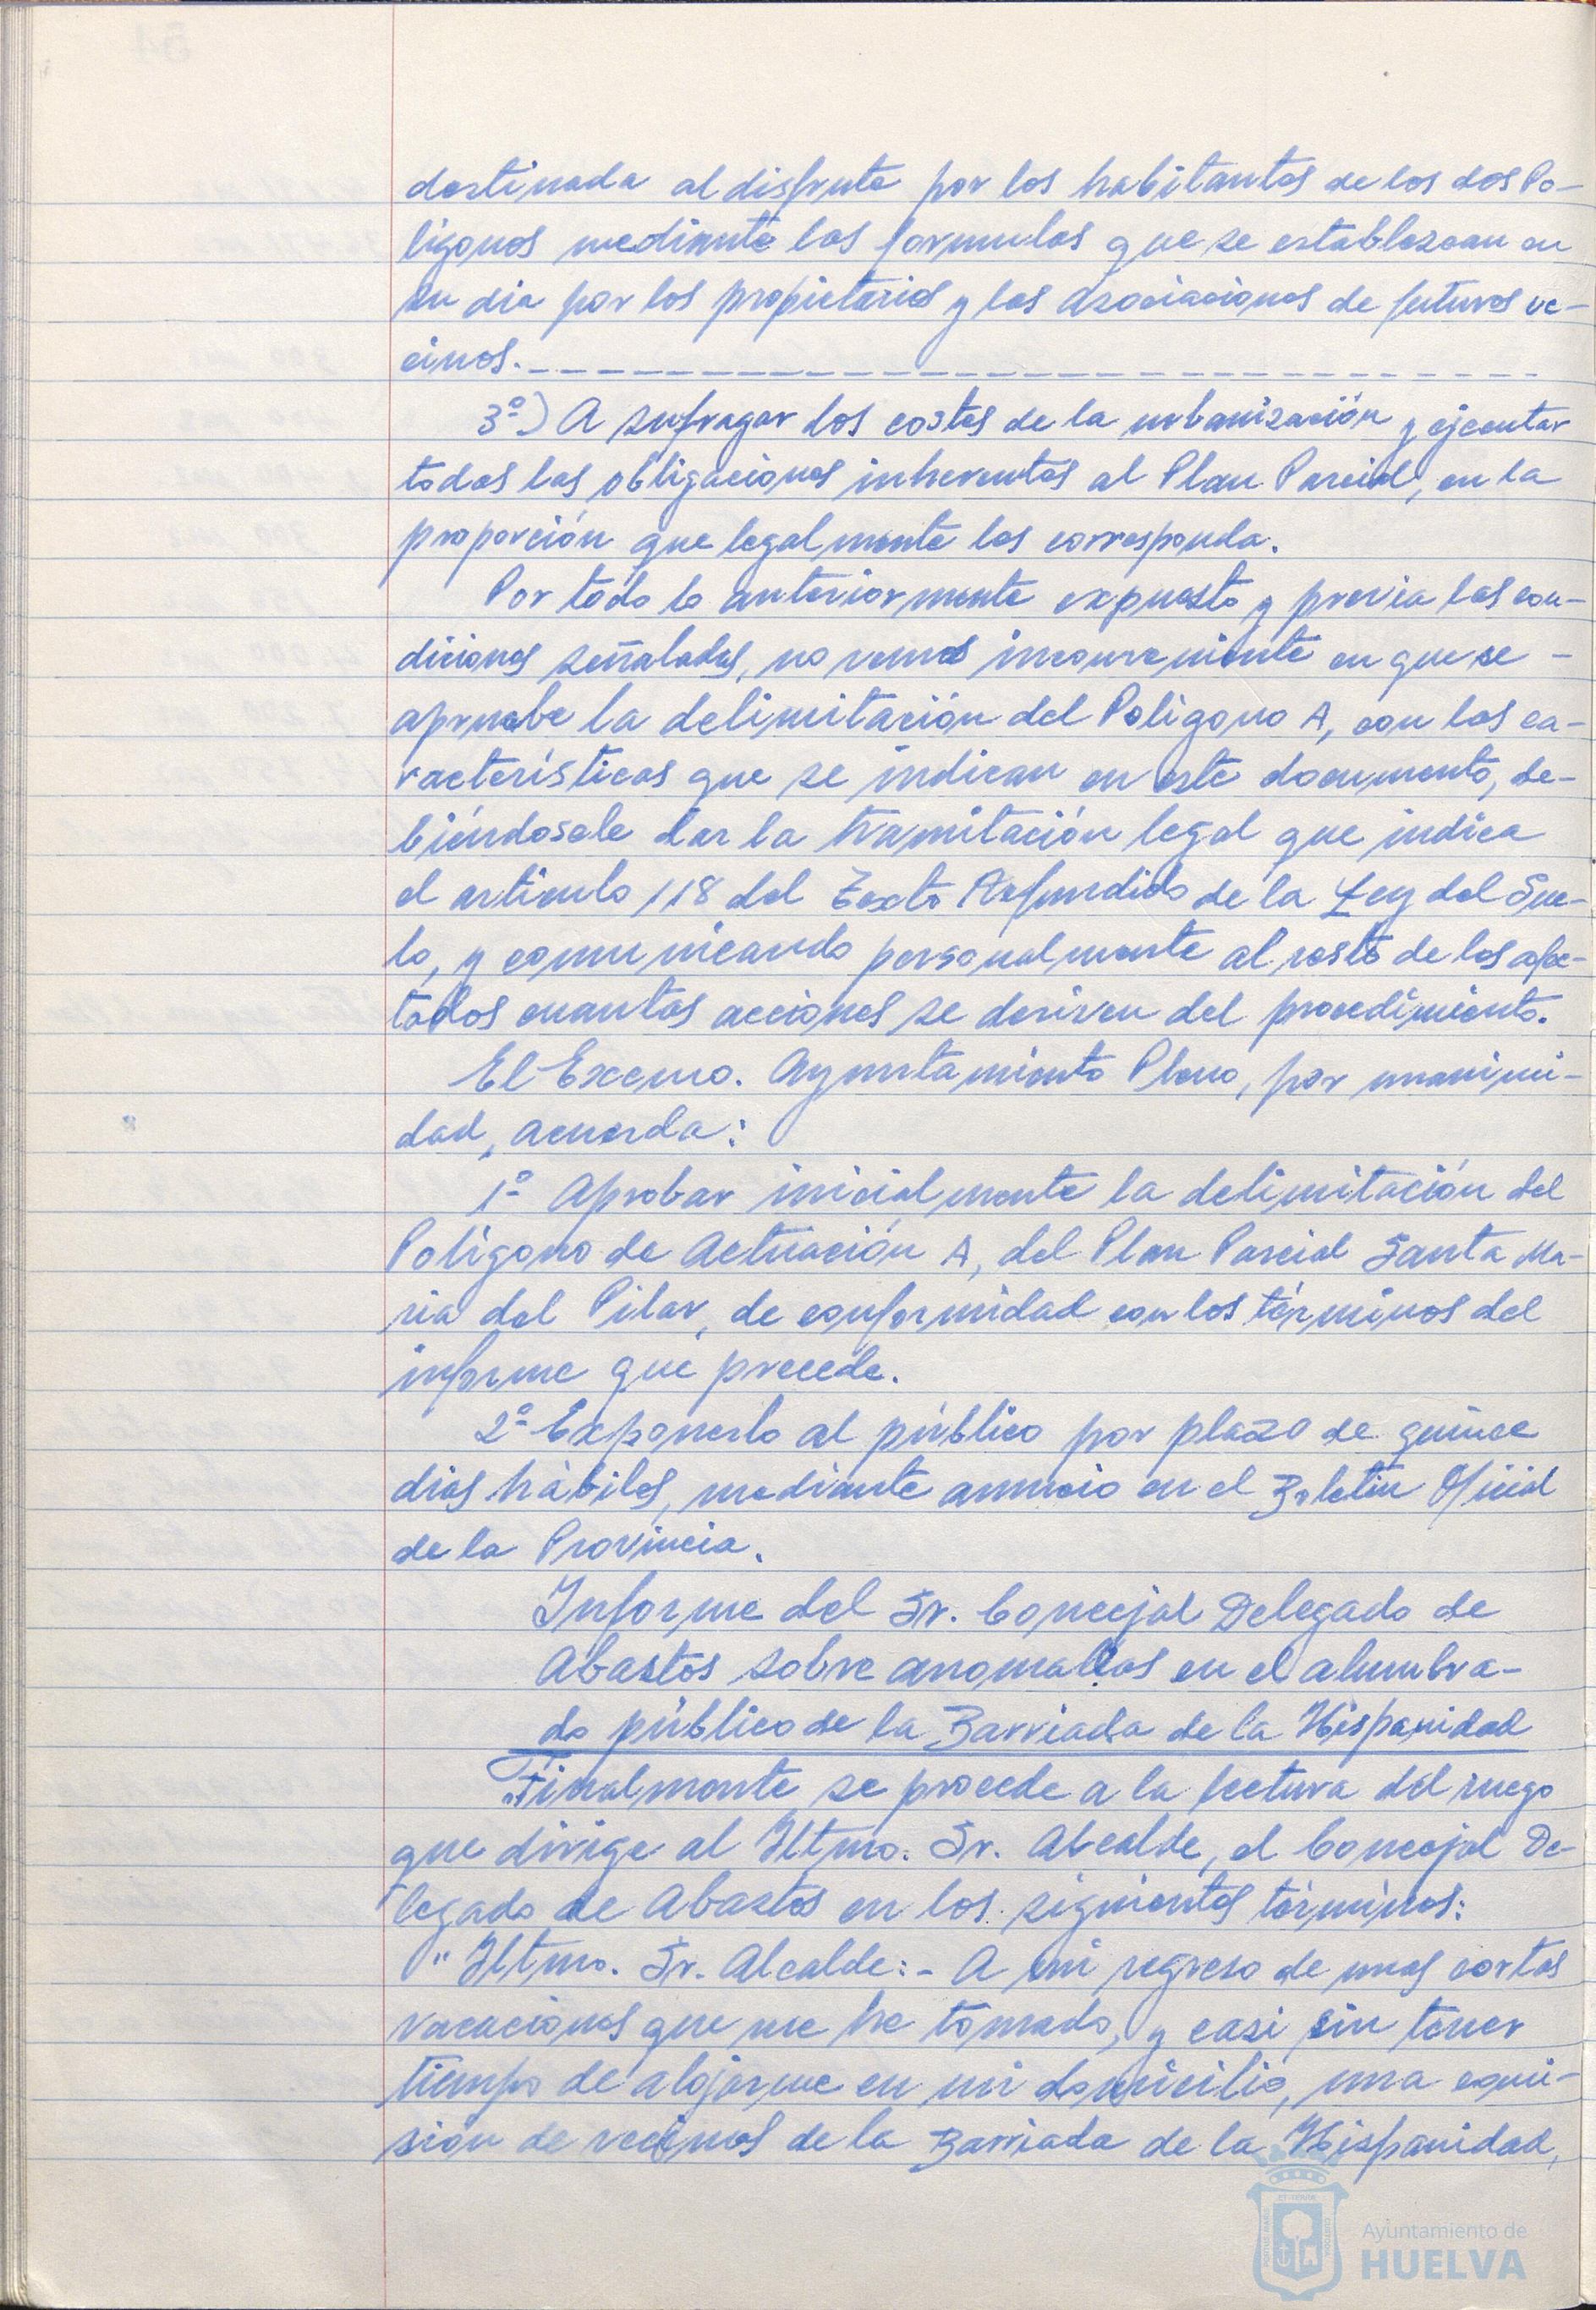 destinada al disfrute por los habitantes de los dos Po-
lígonos mediante las formulas que se establezcan en
su dia por los propietarios y las asociaciones de futuros ve-
cinos.- - - - - - - - - - - - - - - - - - - - - - - - - - - -
3º) A sufragar los costes de la urbanización y ejecutar
todas las obligaciones inherentes al Plan Parcial, en la
proporción que legalmente les corresponda.
Por todo lo anteriormente expuesto y previa las con-
diciones señaladas, no vemos inconveniente en que se -
apruebe la delimitación del Poligono A, con las ca-
racterísticas que se indican en este documento, de-
biéndosele dar la tramitación legal que indica
el artículo 118 del Texto Refundido de la Ley del Sue-
lo, y comunicando personalmente al resto de los afec-
tados cuantas acciones se deriven del procedimiento.
El Excmo. Ayuntamiento Pleno, por unanimi-
dad, acuerda:
1º Aprobar inicialmente la delimitación del
Polígono de Actuación A, del Plan Parcial Santa Ma-
ria del Pilar, de conformidad con los términos del
informe que precede.
2º Exponerlo al público por plazo de quince
dias hábiles, mediante anuncio en el Boletin Oficial
de la Provincia.
Informe del Sr. Concejal Delegado de
Abastos sobre anomalías en el alumbra-
do público de la Barriada de la Hispanidad
Finalmente se procede a la lectura del ruego
que dirige al Iltmo. Sr. Alcalde, el Concejal De-
legado de Abastos en los siguientes términos:
"Iltmo. Sr. Alcalde:- A mi regreso de unas cortas
vacaciones que me he tomado, y casi sin tener
tiempo de alojarme en mi domicilio, una comi-
sión de vecinos de la Barriada de la Hispanidad,
Ayuntamiento de
HUELVA